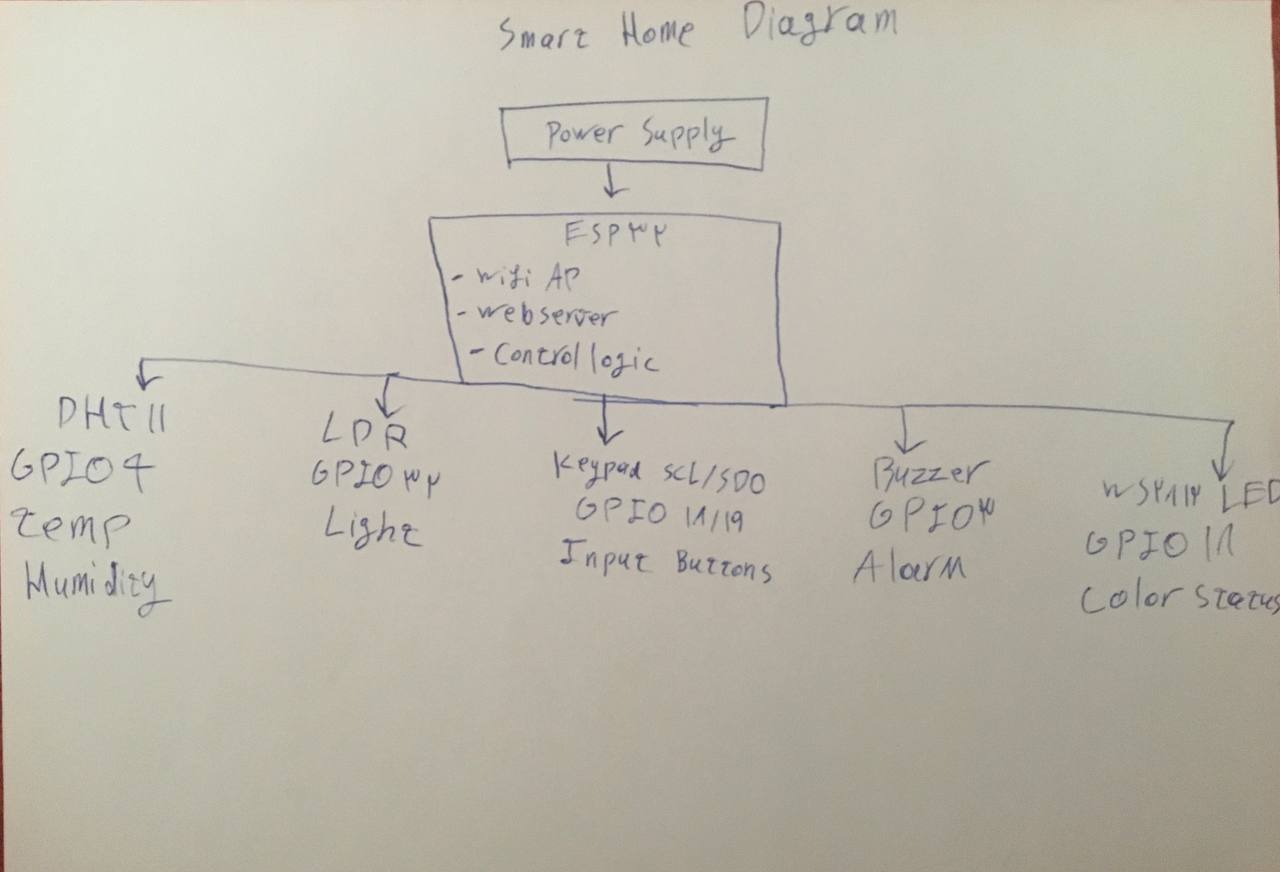 Smart Home Diagram
Power Supply
ESP۳۲
- wifi AP
- webserver
- Control logic
DHT11
GPIO4
temp
Humidity
LDR
GPIO۳۲
Light
Keypad SCL/SDO
GPIO ۱۸/۱۹
Input Buttons
Buzzer
GPIO۳
Alarm
WS۲۸۱۲ LED
GPIO ۱۸
Color Status